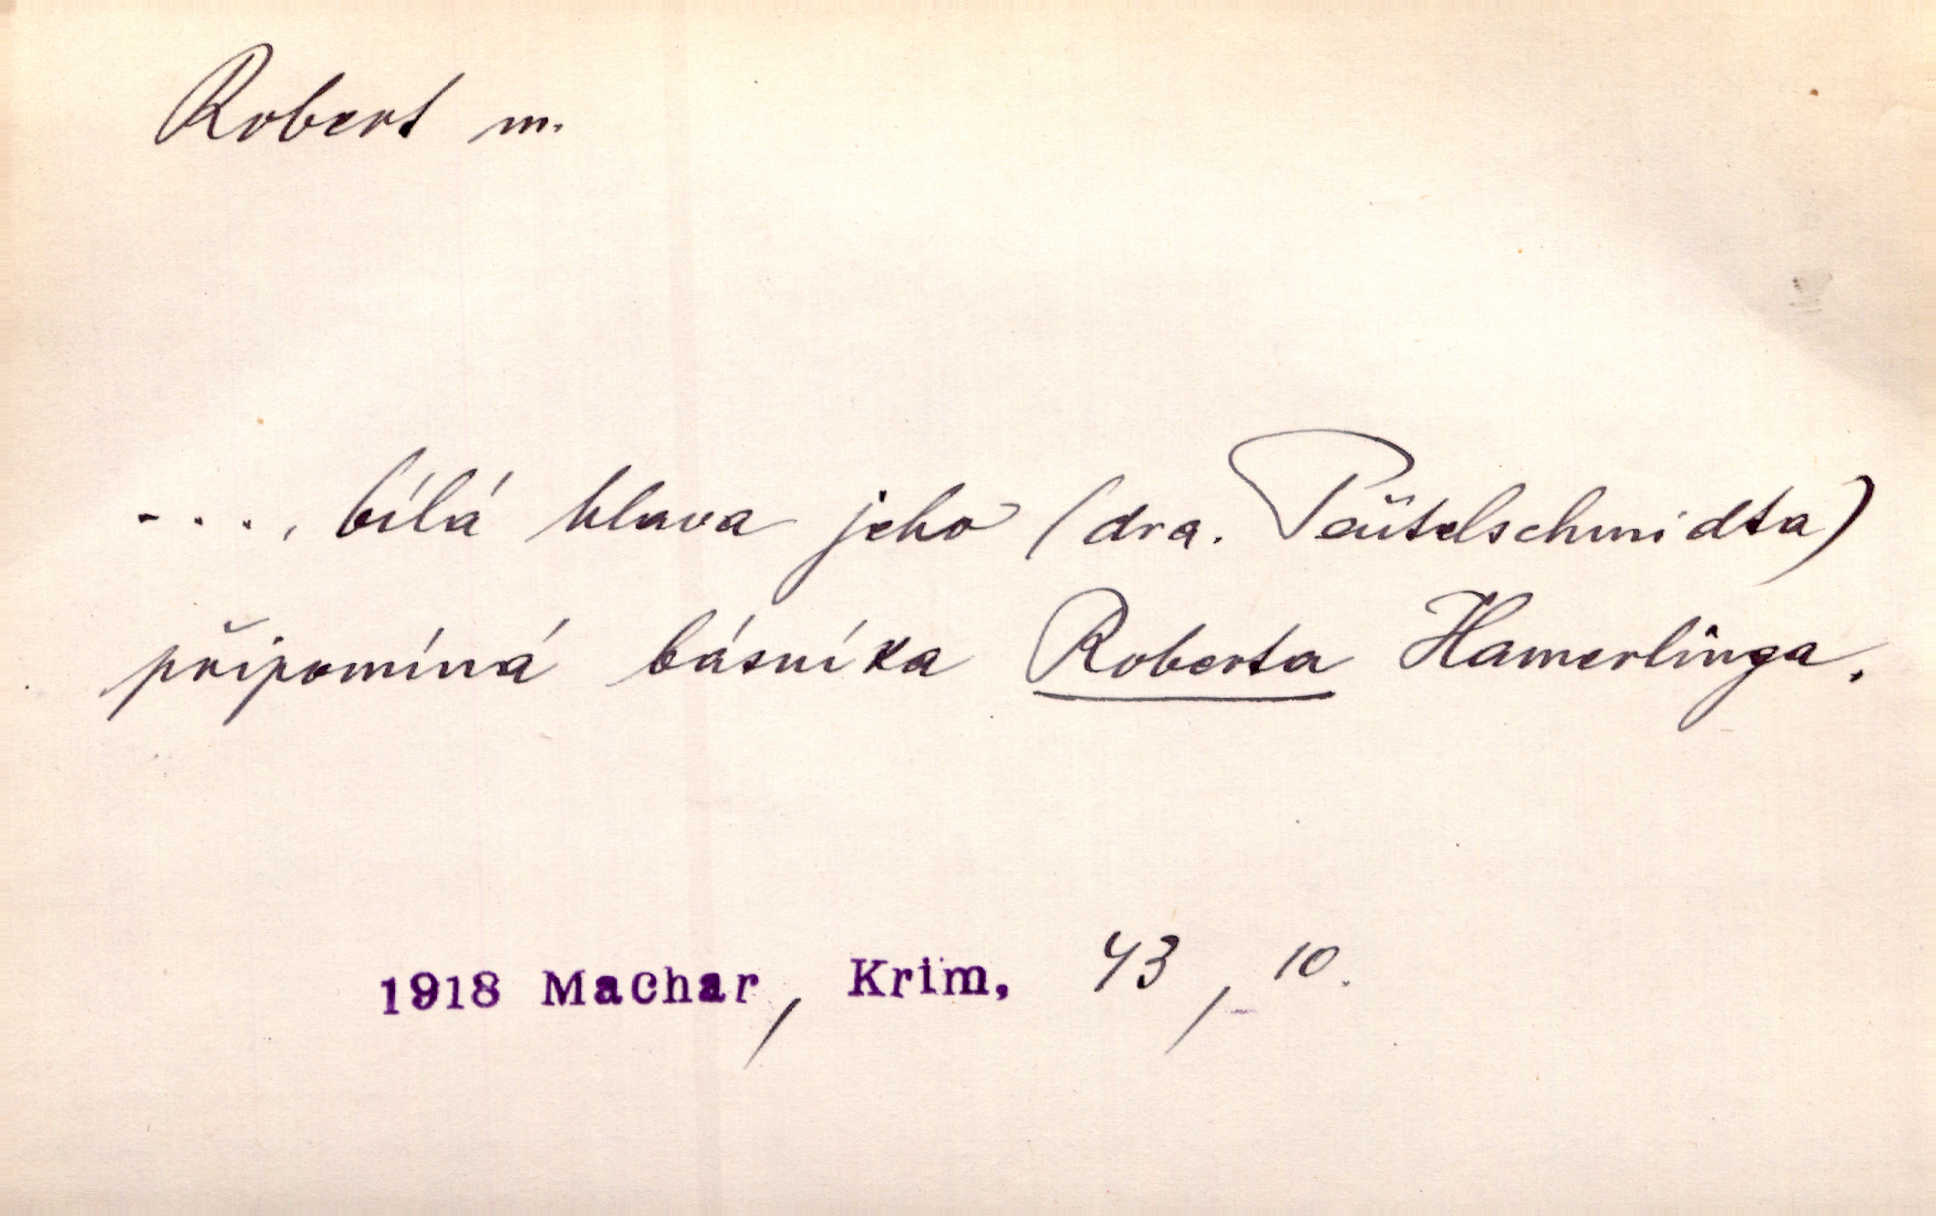 Robert m.
...., bílá hlava jeho (dra. Teütelschmidta)
připomíná básníka Roberta Hamerlinga.
1918 Machar, Krim, 43, 10.